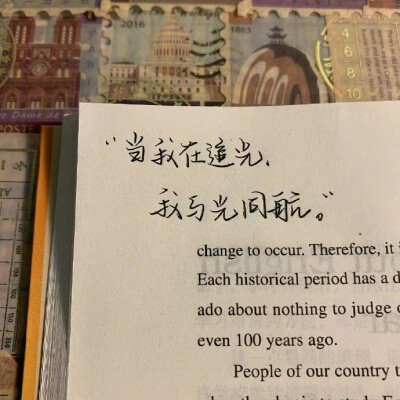 2016
1863
Notre Dame de
POSTE
4 6
8
10
“当我在追光、
我与光同航。”
change to occur. Therefore, it i
Each historical period has a d
ado about nothing to judge o
even 100 years ago.
People of our country t